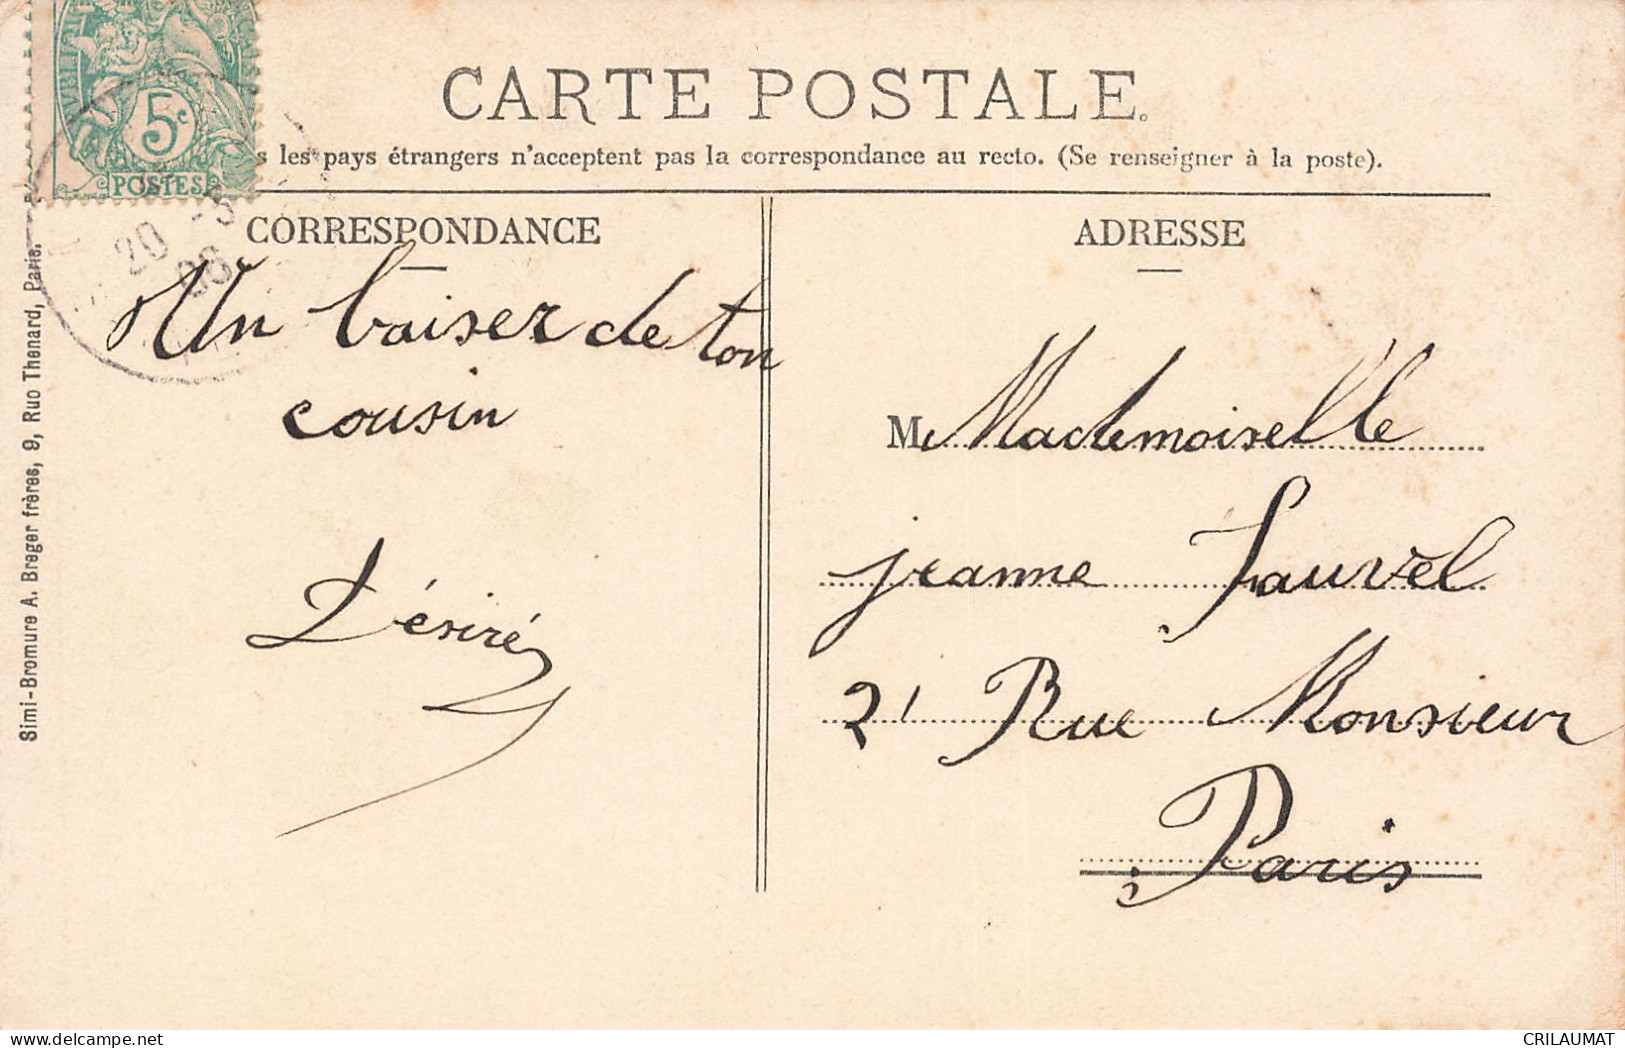 CARTE POSTALE.
les pays étrangers n'acceptent pas la correspondance au recto. (Se renseigner à la poste).
5c
POSTES
20 -5
CORRESPONDANCE
Un baiser de ton
cousin
Désiré
ADRESSE
M Mademoiselle
jeanne Fauvel
21 Rue Monsieur
Paris
Simi-Bromure A. Breger frères, 9, Rue Thenard, Paris.
delcampe.net
CRILAUMAT